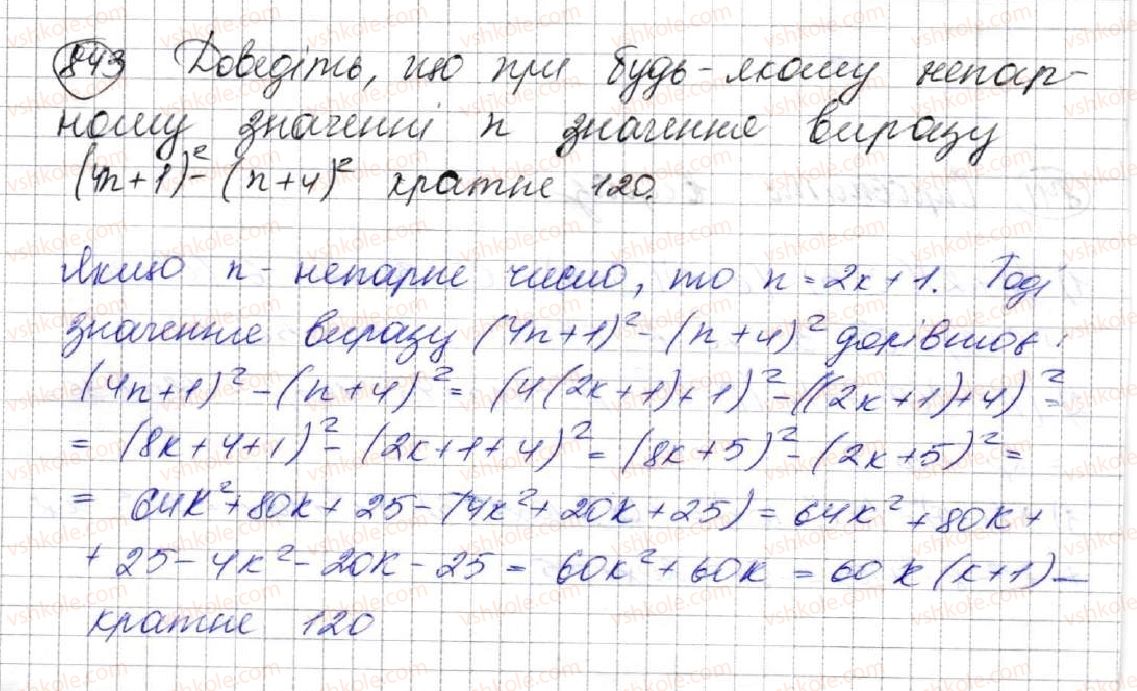 843 Доведіть, що при будь-якому непар-
ному значенні n значення виразу
(4n+1)²-(n+4)² кратне 120.
Якщо n - непарне число, то n = 2k+1. Тоді
значення виразу (4n+1)²-(n+4)² дорівнює:
(4n+1)²-(n+4)² = (4(2k+1)+1)²-((2k+1)+4)² =
= (8k+4+1)²-(2k+1+4)² = (8k+5)²-(2k+5)² =
= 64k²+80k+25-(4k²+20k+25) = 64k²+80k+
+25-4k²-20k-25 = 60k²+60k = 60k(k+1) -
кратне 120